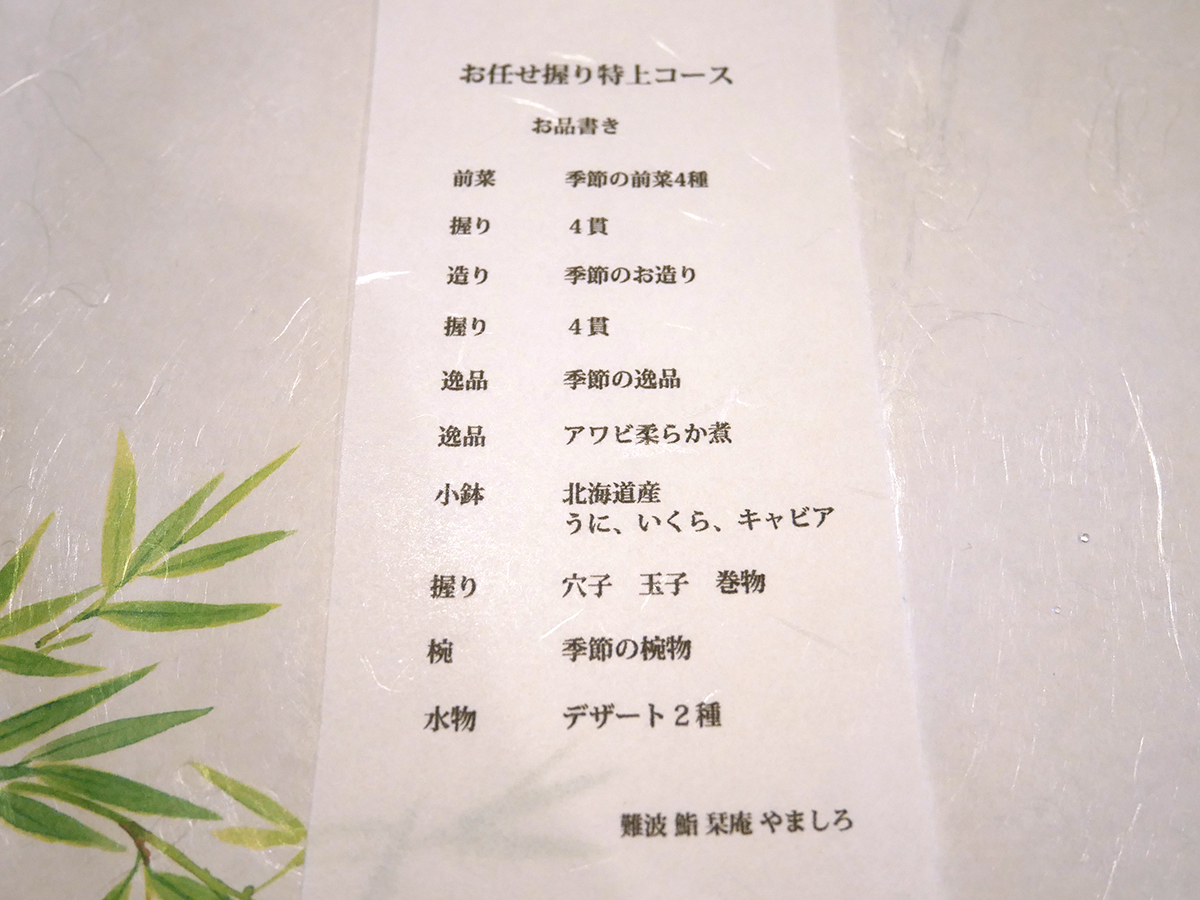 お任せ握り特上コース
お品書き
前菜 季節の前菜4種
握り 4貫
造り 季節のお造り
握り 4貫
逸品 季節の逸品
逸品 アワビ柔らか煮
小鉢 北海道産
うに、いくら、キャビア
握り 穴子 玉子 巻物
椀 季節の椀物
水物 デザート2種
難波 鮨 栞庵 やましろ